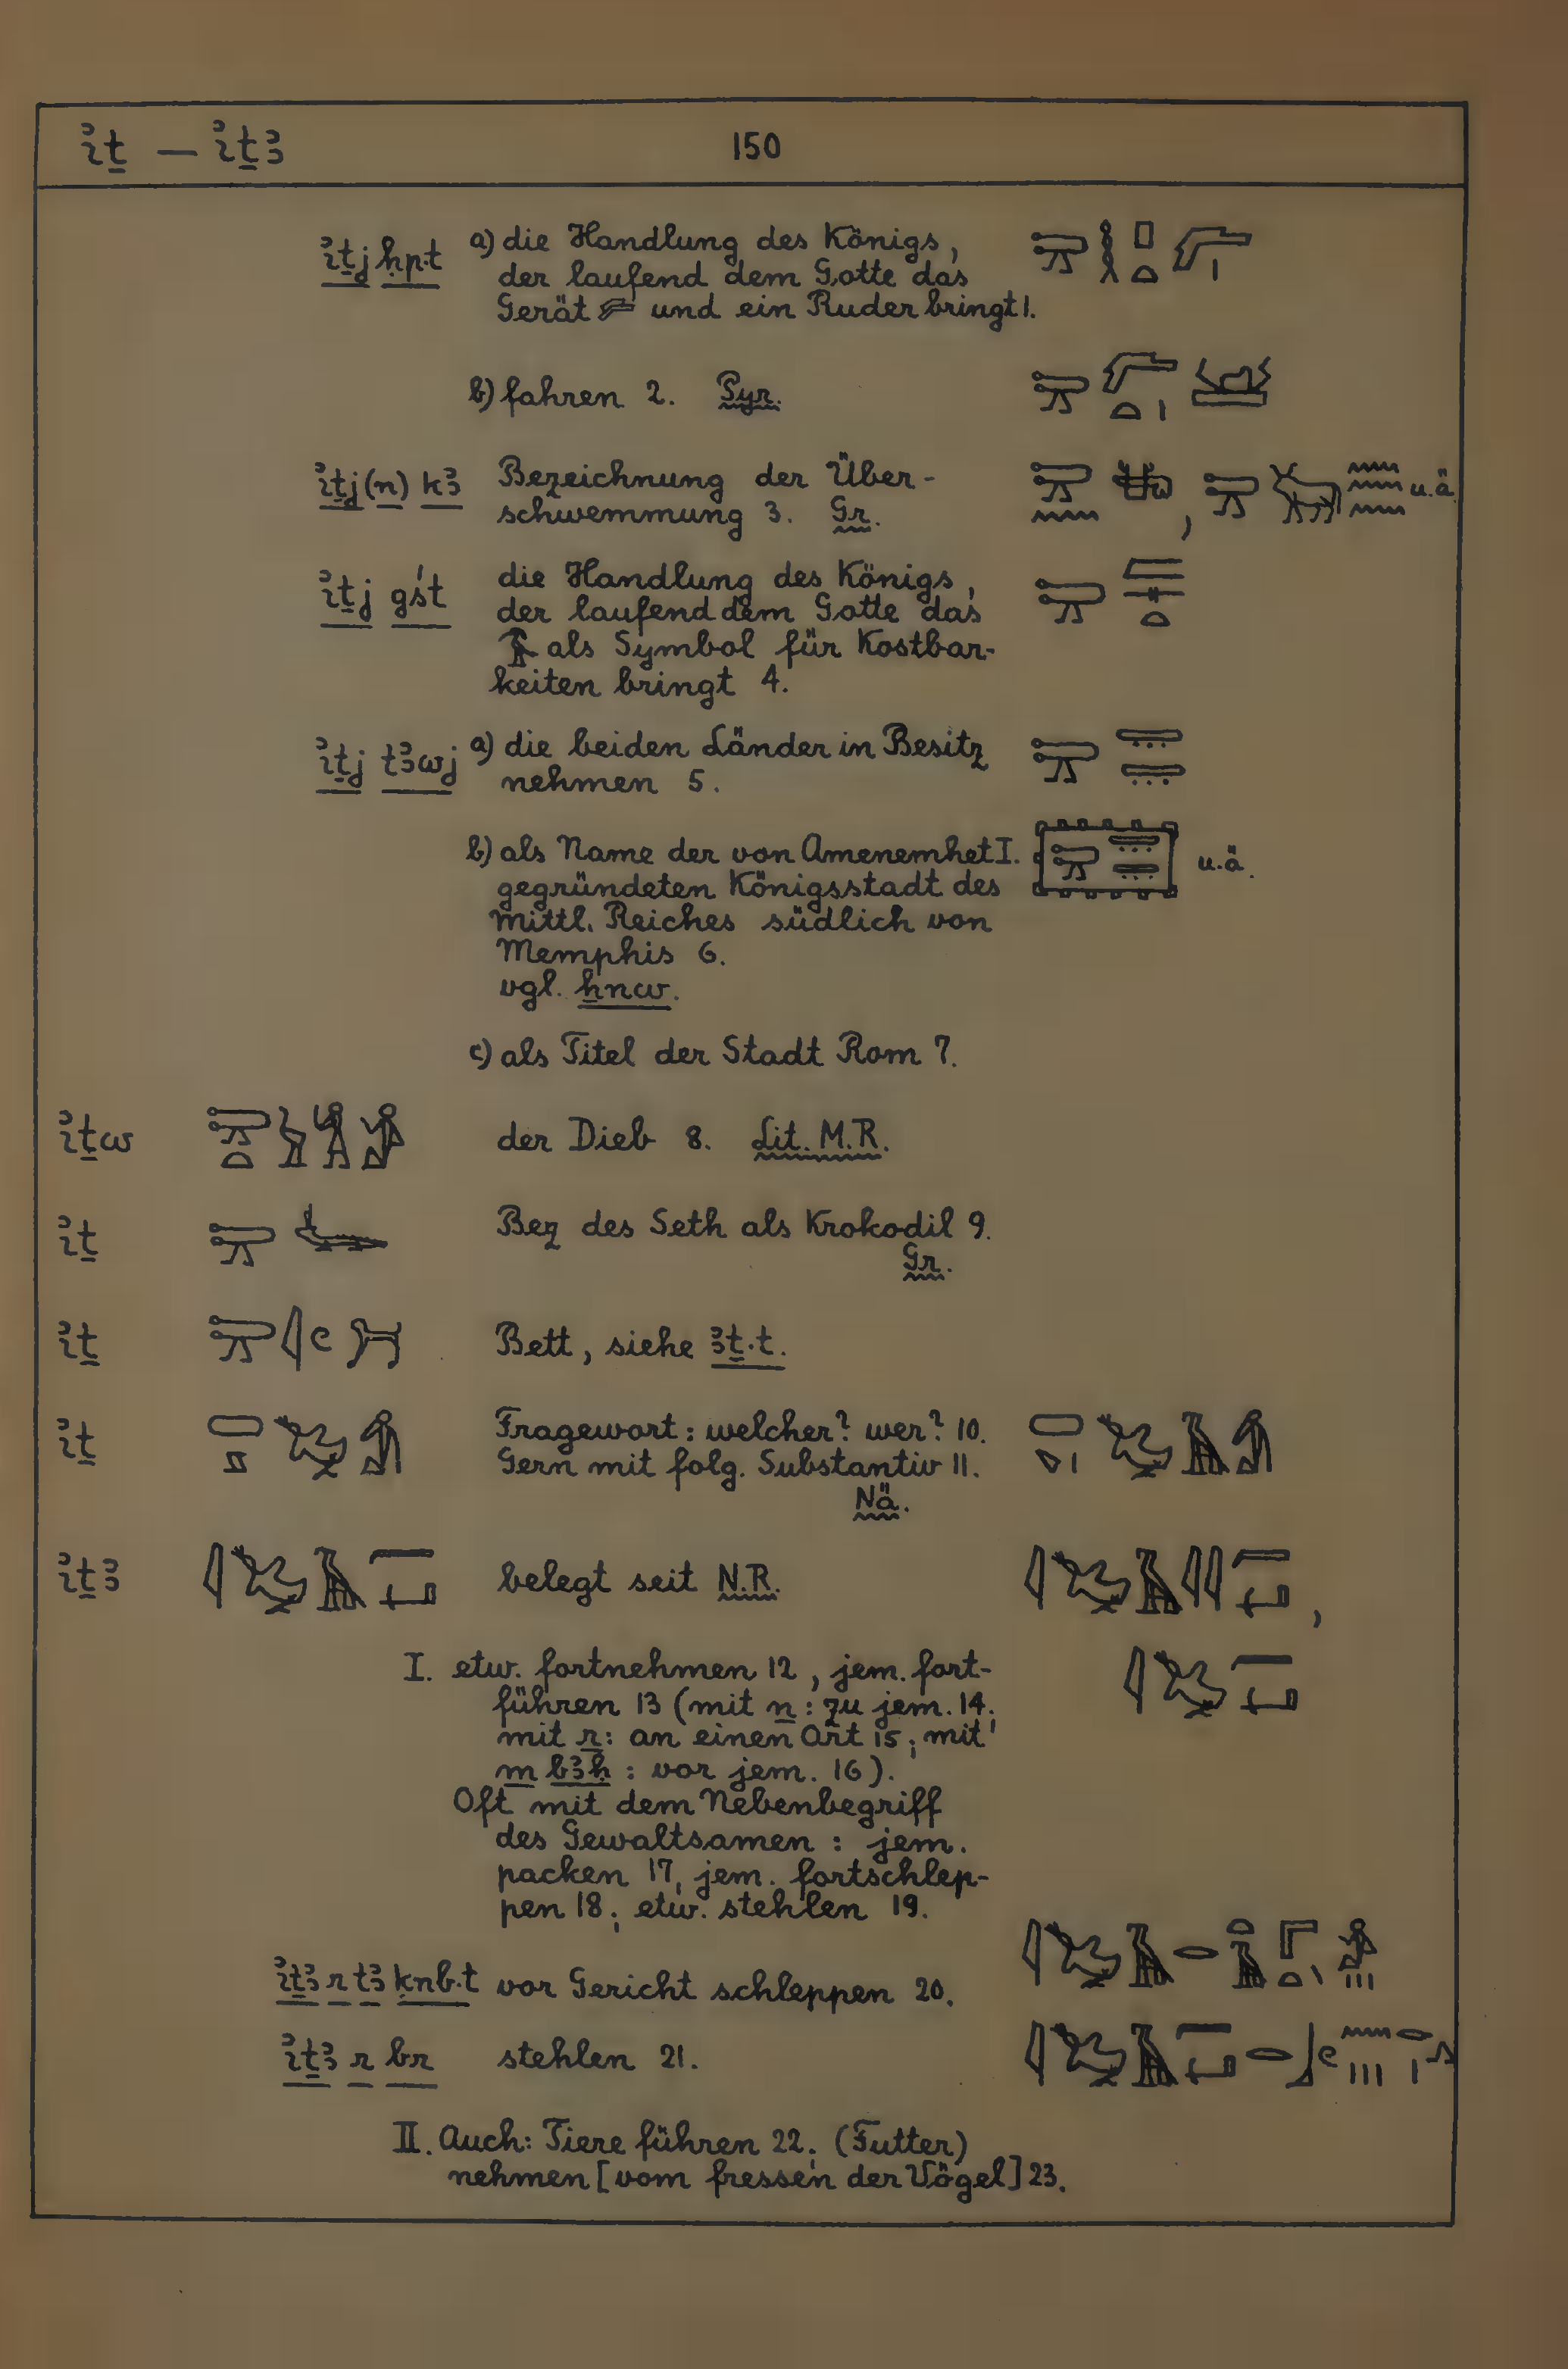 ı͗ṯ — ı͗ṯꜣ 150
ı͗ṯj ḥp·t a) die Handlung des Königs,
der laufend dem Gotte das
Gerät und ein Ruder bringt 1.
b) fahren 2. Pyr.
ı͗ṯj (n) kꜣ Bezeichnung der Über-
schwemmung 3. Gr. , u.ä.
ı͗ṯj gśt die Handlung des Königs,
der laufend dem Gotte das
als Symbol für Kostbar-
keiten bringt 4.
ı͗ṯj tꜣwj a) die beiden Länder in Besitz
nehmen 5.
b) als Name der von Amenemhet I. u.ä.
gegründeten Königsstadt des
mittl. Reiches südlich von
Memphis 6.
vgl. ẖnw.
c) als Titel der Stadt Rom 7.
ı͗ṯw der Dieb 8. Lit. M.R.
ı͗ṯ Bez des Seth als Krokodil 9.
Gr.
ı͗ṯ Bett, siehe ꜣṯ·t.
ı͗ṯ Fragewort: welcher? wer? 10.
Gern mit folg. Substantiv 11.
Nä.
ı͗ṯꜣ belegt seit N.R. ,
I. etw. fortnehmen 12, jem. fort-
führen 13 (mit n: zu jem. 14;
mit r: an einen Ort 15; mit
m bꜣḥ: vor jem. 16).
Oft mit dem Nebenbegriff
des Gewaltsamen: jem.
packen 17, jem. fortschlep-
pen 18; etw. stehlen 19.
ı͗ṯꜣ r tꜣ ḳnb·t vor Gericht schleppen 20.
ı͗ṯꜣ r br stehlen 21.
II. Auch: Tiere führen 22; (Futter)
nehmen [vom fressen der Vögel] 23.